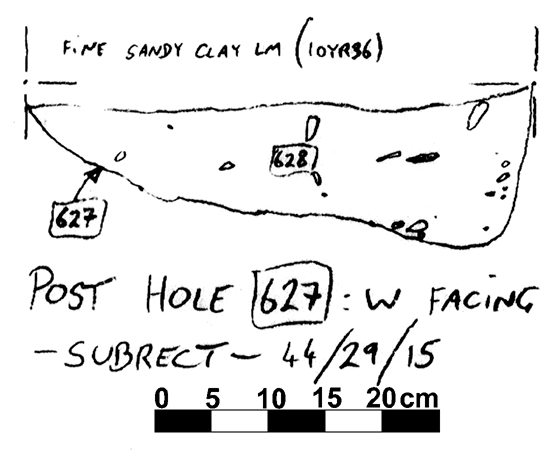 FINE SANDY CLAY LM (10YR36)
628
627
POST HOLE 627: W FACING
- SUBRECT - 44/29/15
0 5 10 15 20 cm